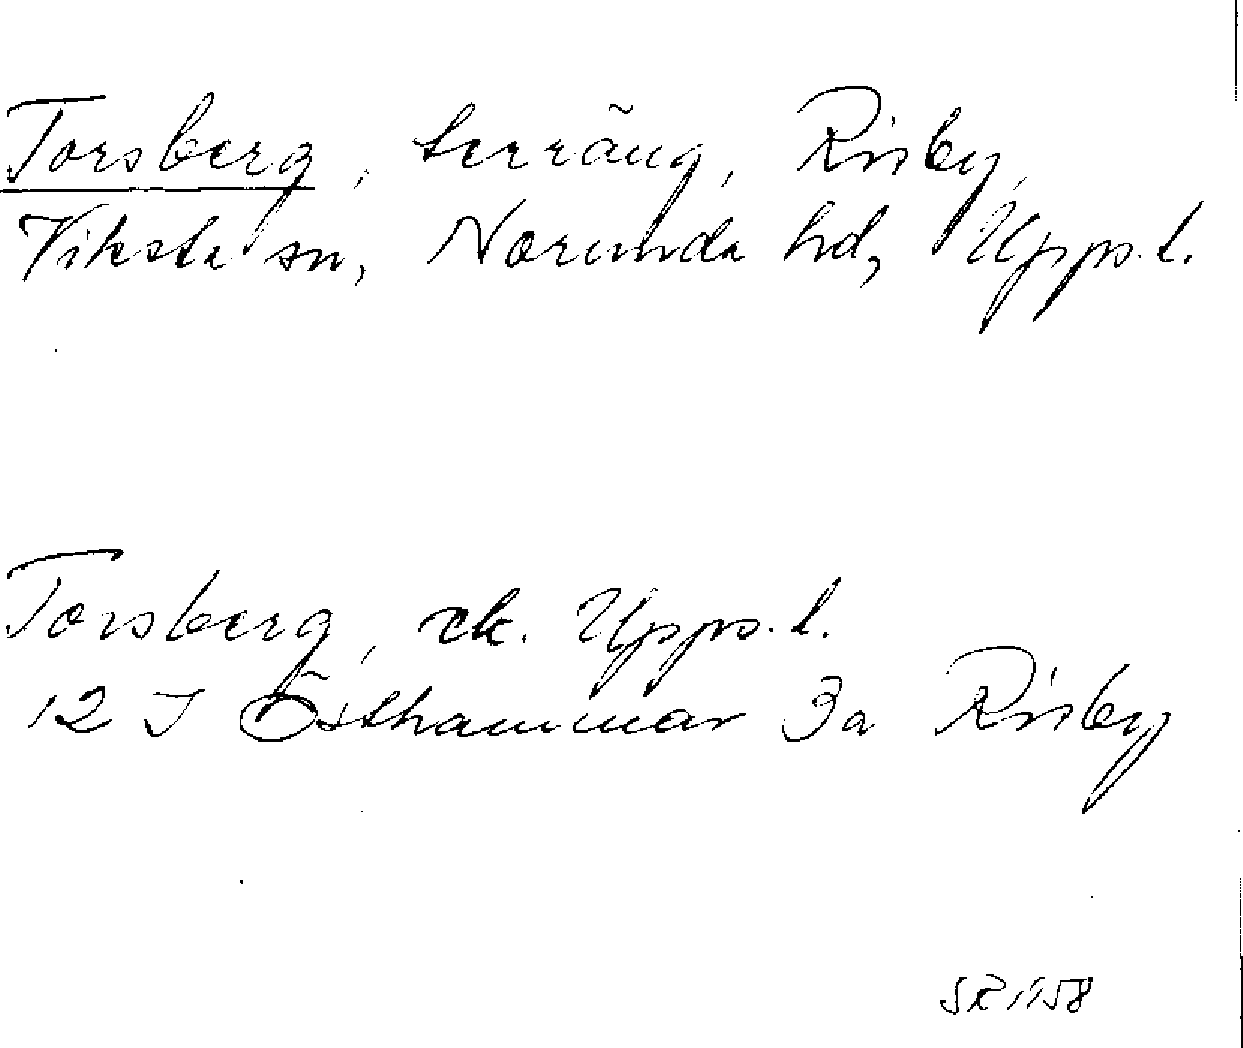 Torsberg, terräng, Risby,
Viksta sn, Norunda hd, Upps. l.
Torsberg, ek. Upps. l.
12 I Östhammar 3a Risby